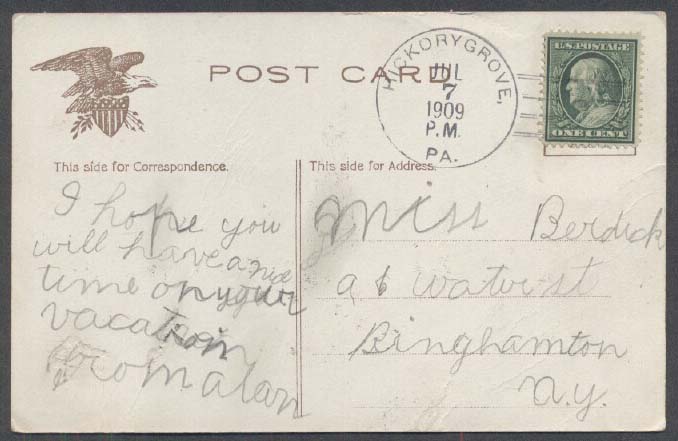 POST CARD
HICKORYGROVE,
JUL
7
1909
P.M.
PA.
U.S. POSTAGE
ONE CENT
This side for Correspondence.
I hope you
will have a nice
time on your
vacation
from alan
This side for Address.
Miss Berdick
at watir st
Binghamton
N.Y.